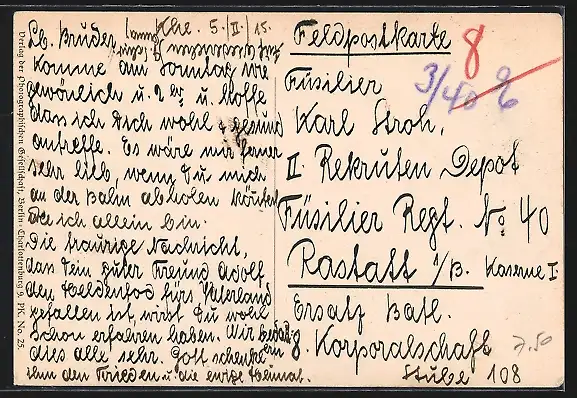 Khe. 5./II. 15.
Lb. Bruder
Komme am Sonntag wie
gewöhnlich u. 2 er u. hoffe
dass ich Dich wohl & gesund
antreffe. Es wäre mir ferner
sehr lieb, wenn Du mich
an der Bahn abholen könntest
da ich allein bin.
Die traurige Nachricht,
dass Dein guter Freund Adolf
den Heldentod fürs Vaterland
gefallen ist, wirst Du wohl
schon erfahren haben. Wir
dies alle sehr. Gott schenke
ihm den Frieden u. die ewige Heimat.
Feldpostkarte
8
3/40
Füsilier
Karl Stroh,
II. Rekruten Depot
Füsilier Regt. No. 40
Rastatt i/B. Kaserne I
Ersatz Batl.
8. Korporalschaft
Stube 108
7.50
Verlag der Photographischen Gesellschaft, Berlin-Charlottenburg 9. PK. No. 25.